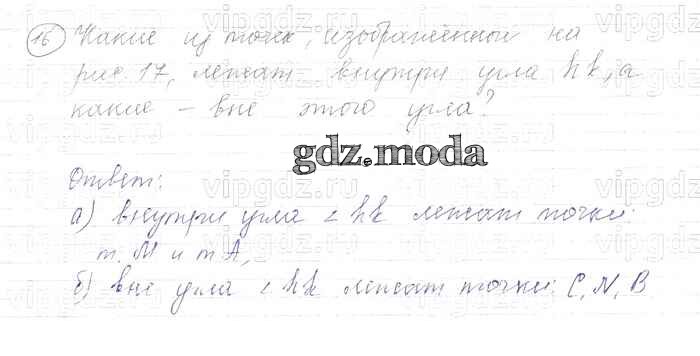 16 Какие из точек, изображённой на
рис. 17, лежат внутри угла hk, а
какие – вне этого угла?
gdz.moda
Ответ:
а) внутри угла ∠ hk лежат точки:
т. М и т А,
б) вне угла ∠ hk лежат точки: C, N, B
vipgdz.ru